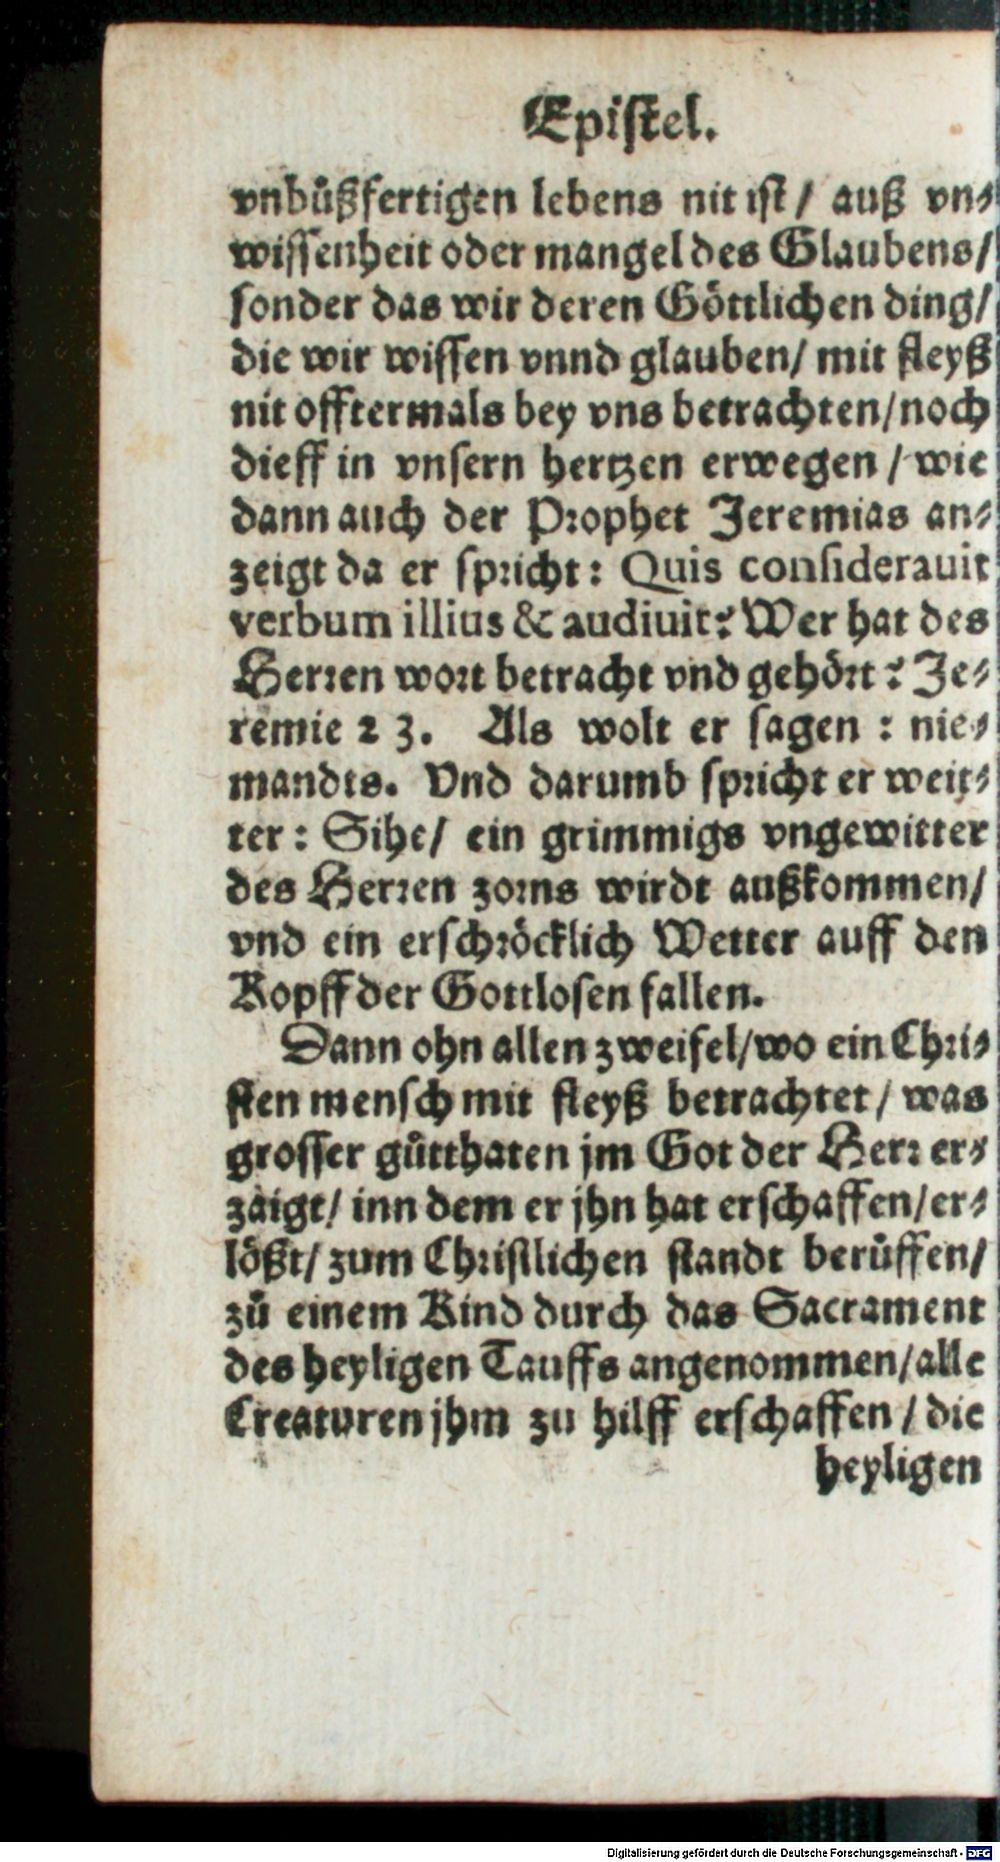 Epistel.
vnbůßfertigen lebens nit ist / auß vn⸗
wissenheit oder mangel des Glaubens/
sonder das wir deren Göttlichen ding/
die wir wissen vnnd glauben/ mit fleyß
nit offtermals bey vns betrachten/noch
dieff in vnsern hertzen erwegen / wie
dann auch der Prophet Jeremias an⸗
zeigt da er spricht: Quis considerauit
verbum illius & audiuit? Wer hat des
Herren wort betracht vnd gehört? Je⸗
remie 23. Als wolt er sagen : nie⸗
mandts. Vnd darumb spricht er weit⸗
ter: Sihe/ ein grimmigs vngewitter
des Herren zorns wirdt außkommen/
vnd ein erschröcklich Wetter auff den
Kopff der Gottlosen fallen.
Dann ohn allen zweifel/wo ein Chri⸗
sten mensch mit fleyß betrachtet / was
grosser gůtthaten jm Got der Herr er⸗
zäigt/ inn dem er jhn hat erschaffen/er⸗
lößt/ zum Christlichen standt berůffen/
zů einem Kind durch das Sacrament
des heyligen Tauffs angenommen/alle
Creaturen jhm zu hilff erschaffen / die
heyligen
Digitalisierung gefördert durch die Deutsche Forschungsgemeinschaft - DFG